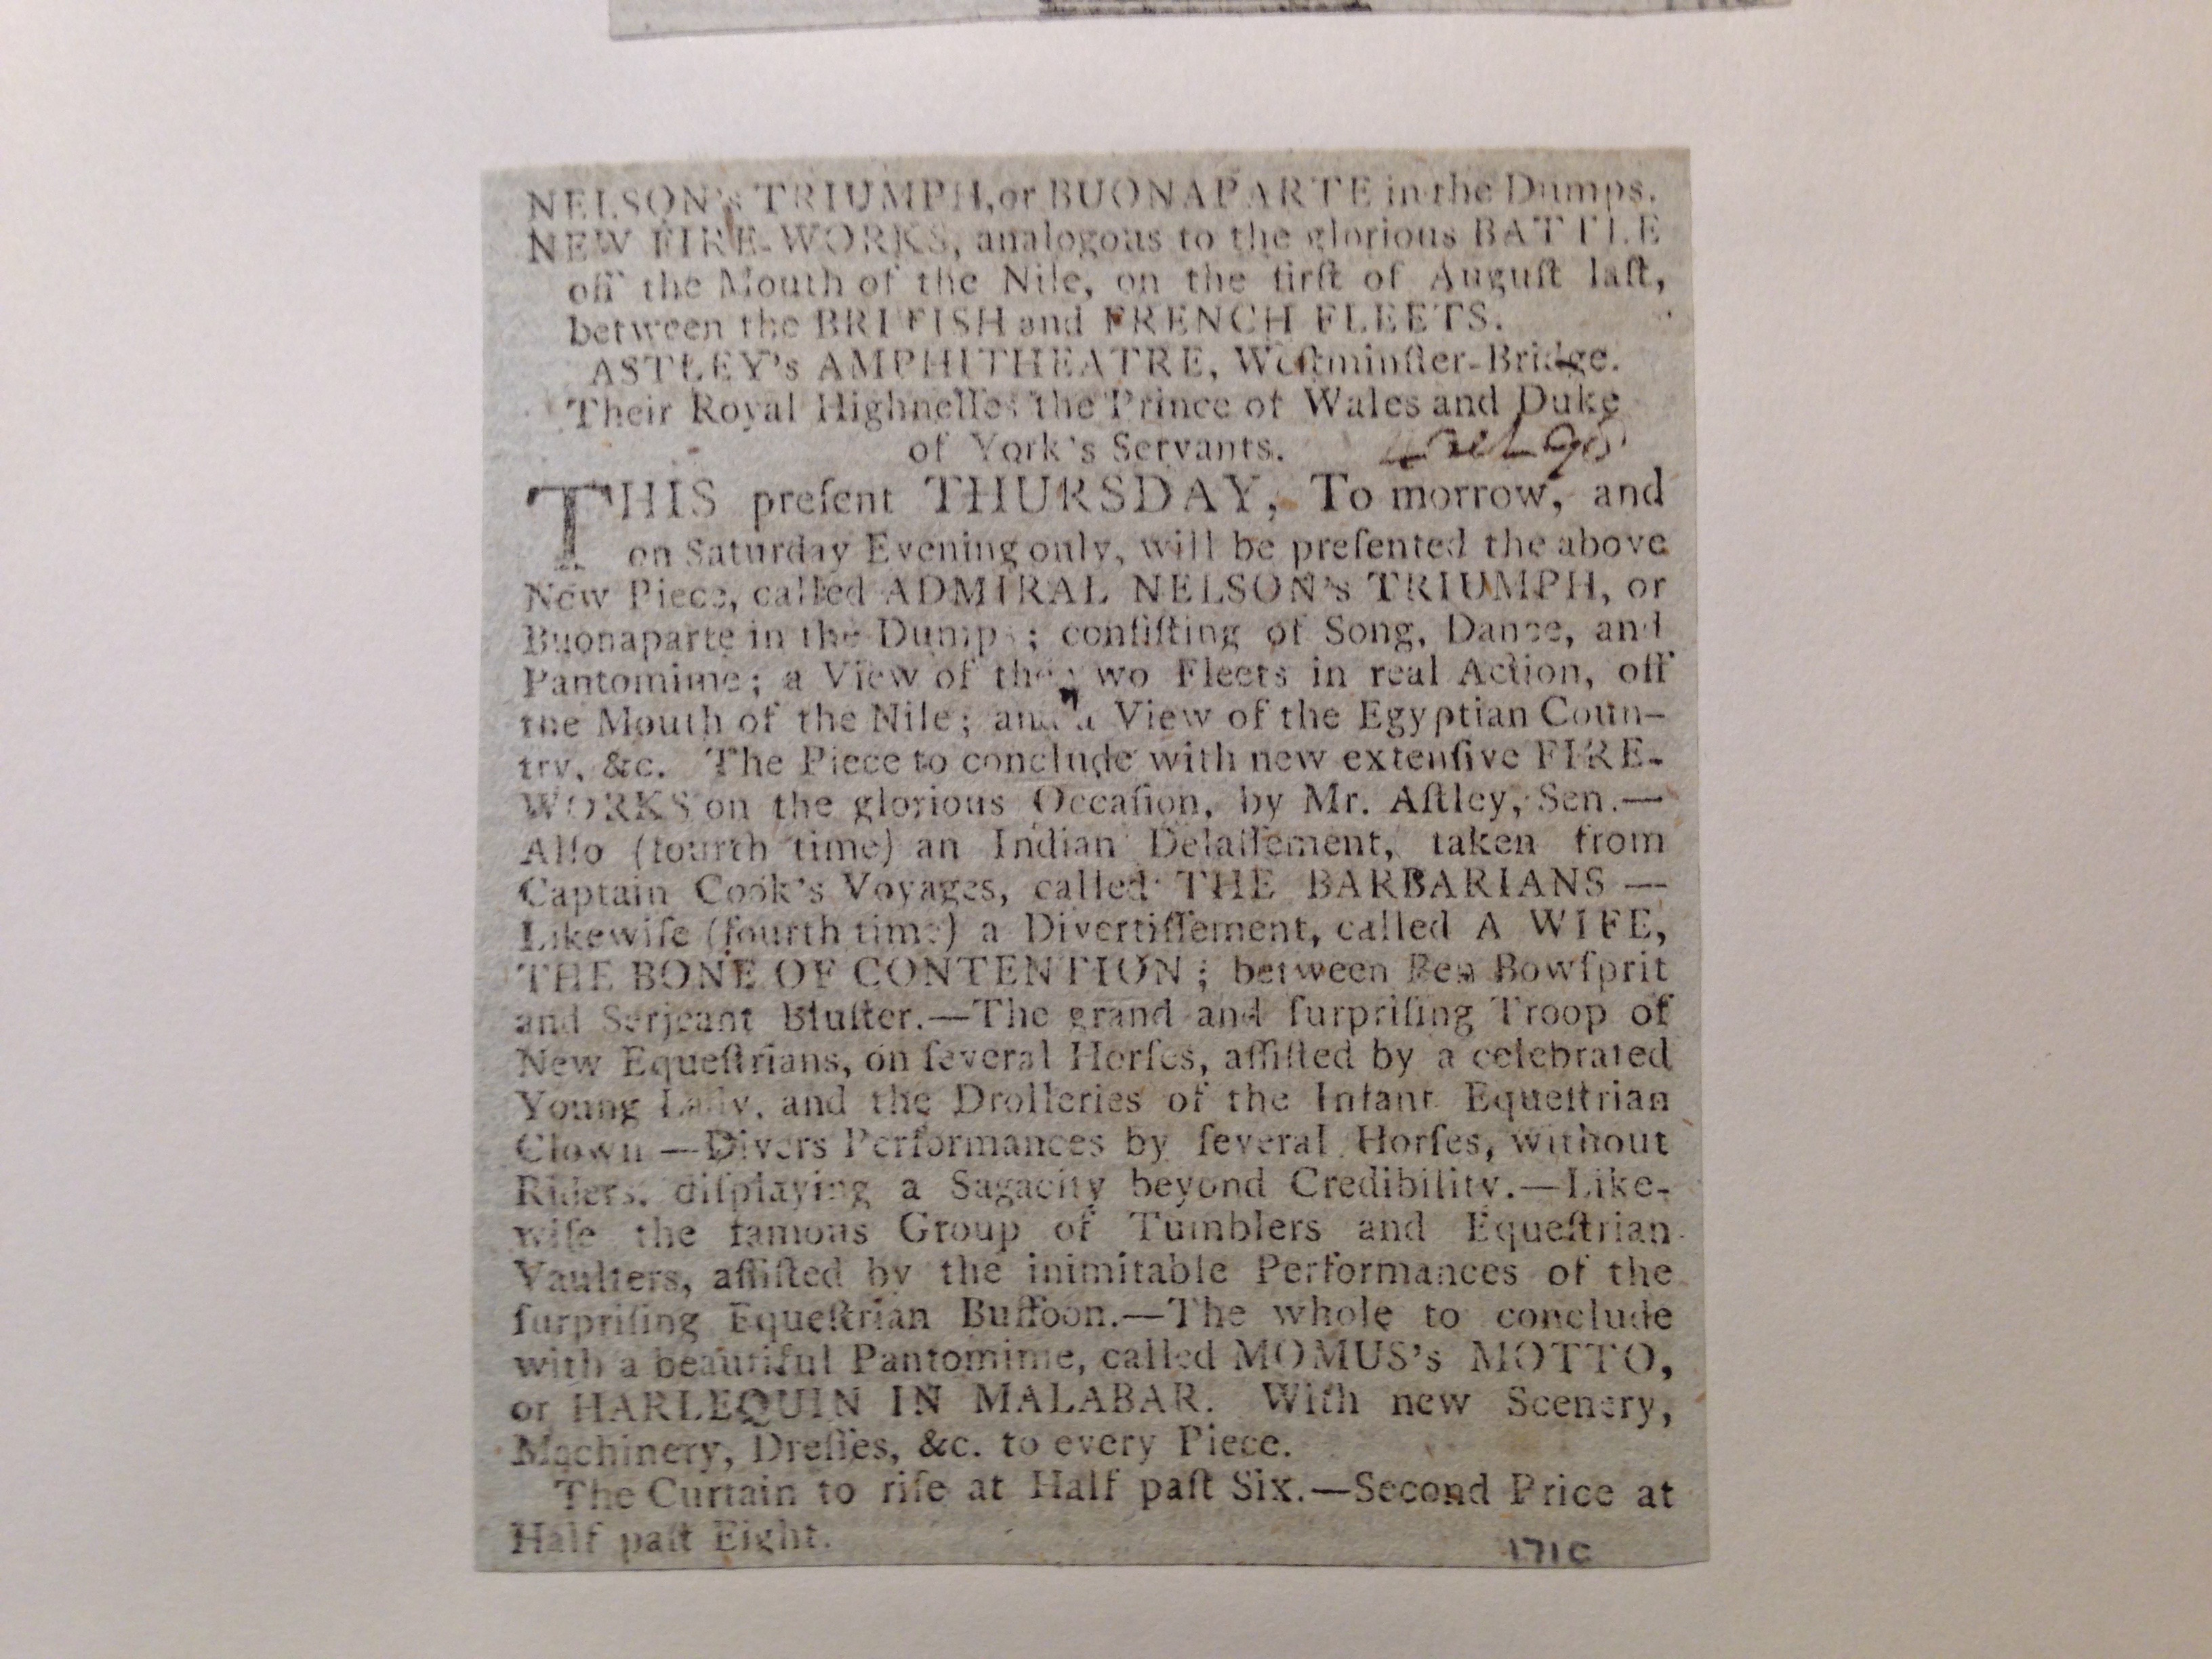 NELSON's TRIUMPH, or BUONAPARTE in the Dumps.
NEW FIRE-WORKS, analogous to the glorious BATTLE
off the Mouth of the Nile, on the firſt of Auguſt laſt,
between the BRITISH and FRENCH FLEETS.
ASTLEY's AMPHITHEATRE, Weſtminſter-Bridge.
Their Royal Highneſſes the Prince of Wales and Duke
of York's Servants.
THIS preſent THURSDAY, To morrow, and
on Saturday Evening only, will be preſented the above
New Piece, called ADMIRAL NELSON's TRIUMPH, or
Buonaparte in the Dumps; conſiſting of Song, Dance, and
Pantomime; a View of the two Fleets in real Action, off
the Mouth of the Nile; and a View of the Egyptian Coun-
try, &c. The Piece to conclude with new extenſive FIRE-
WORKS on the glorious Occaſion, by Mr. Aſtley, Sen.—
Alſo (fourth time) an Indian Delaſſement, taken from
Captain Cook's Voyages, called THE BARBARIANS —
Likewiſe (fourth time) a Divertiſſement, called A WIFE,
THE BONE OF CONTENTION; between Ben Bowſprit
and Serjeant Bluſter.—The grand and ſurpriſing Troop of
New Equeſtrians, on ſeveral Horſes, aſſiſted by a celebrated
Young Lady, and the Drolleries of the Infant Equeſtrian
Clown —Divers Performances by ſeveral Horſes, without
Riders, diſplaying a Sagacity beyond Credibility.—Like-
wiſe the famous Group of Tumblers and Equeſtrian
Vaulters, aſſiſted by the inimitable Performances of the
ſurpriſing Equeſtrian Buffoon.—The whole to conclude
with a beautiful Pantomime, called MOMUS's MOTTO,
or HARLEQUIN IN MALABAR. With new Scenery,
Machinery, Dreſſes, &c. to every Piece.
The Curtain to riſe at Half paſt Six.—Second Price at
Half paſt Eight.